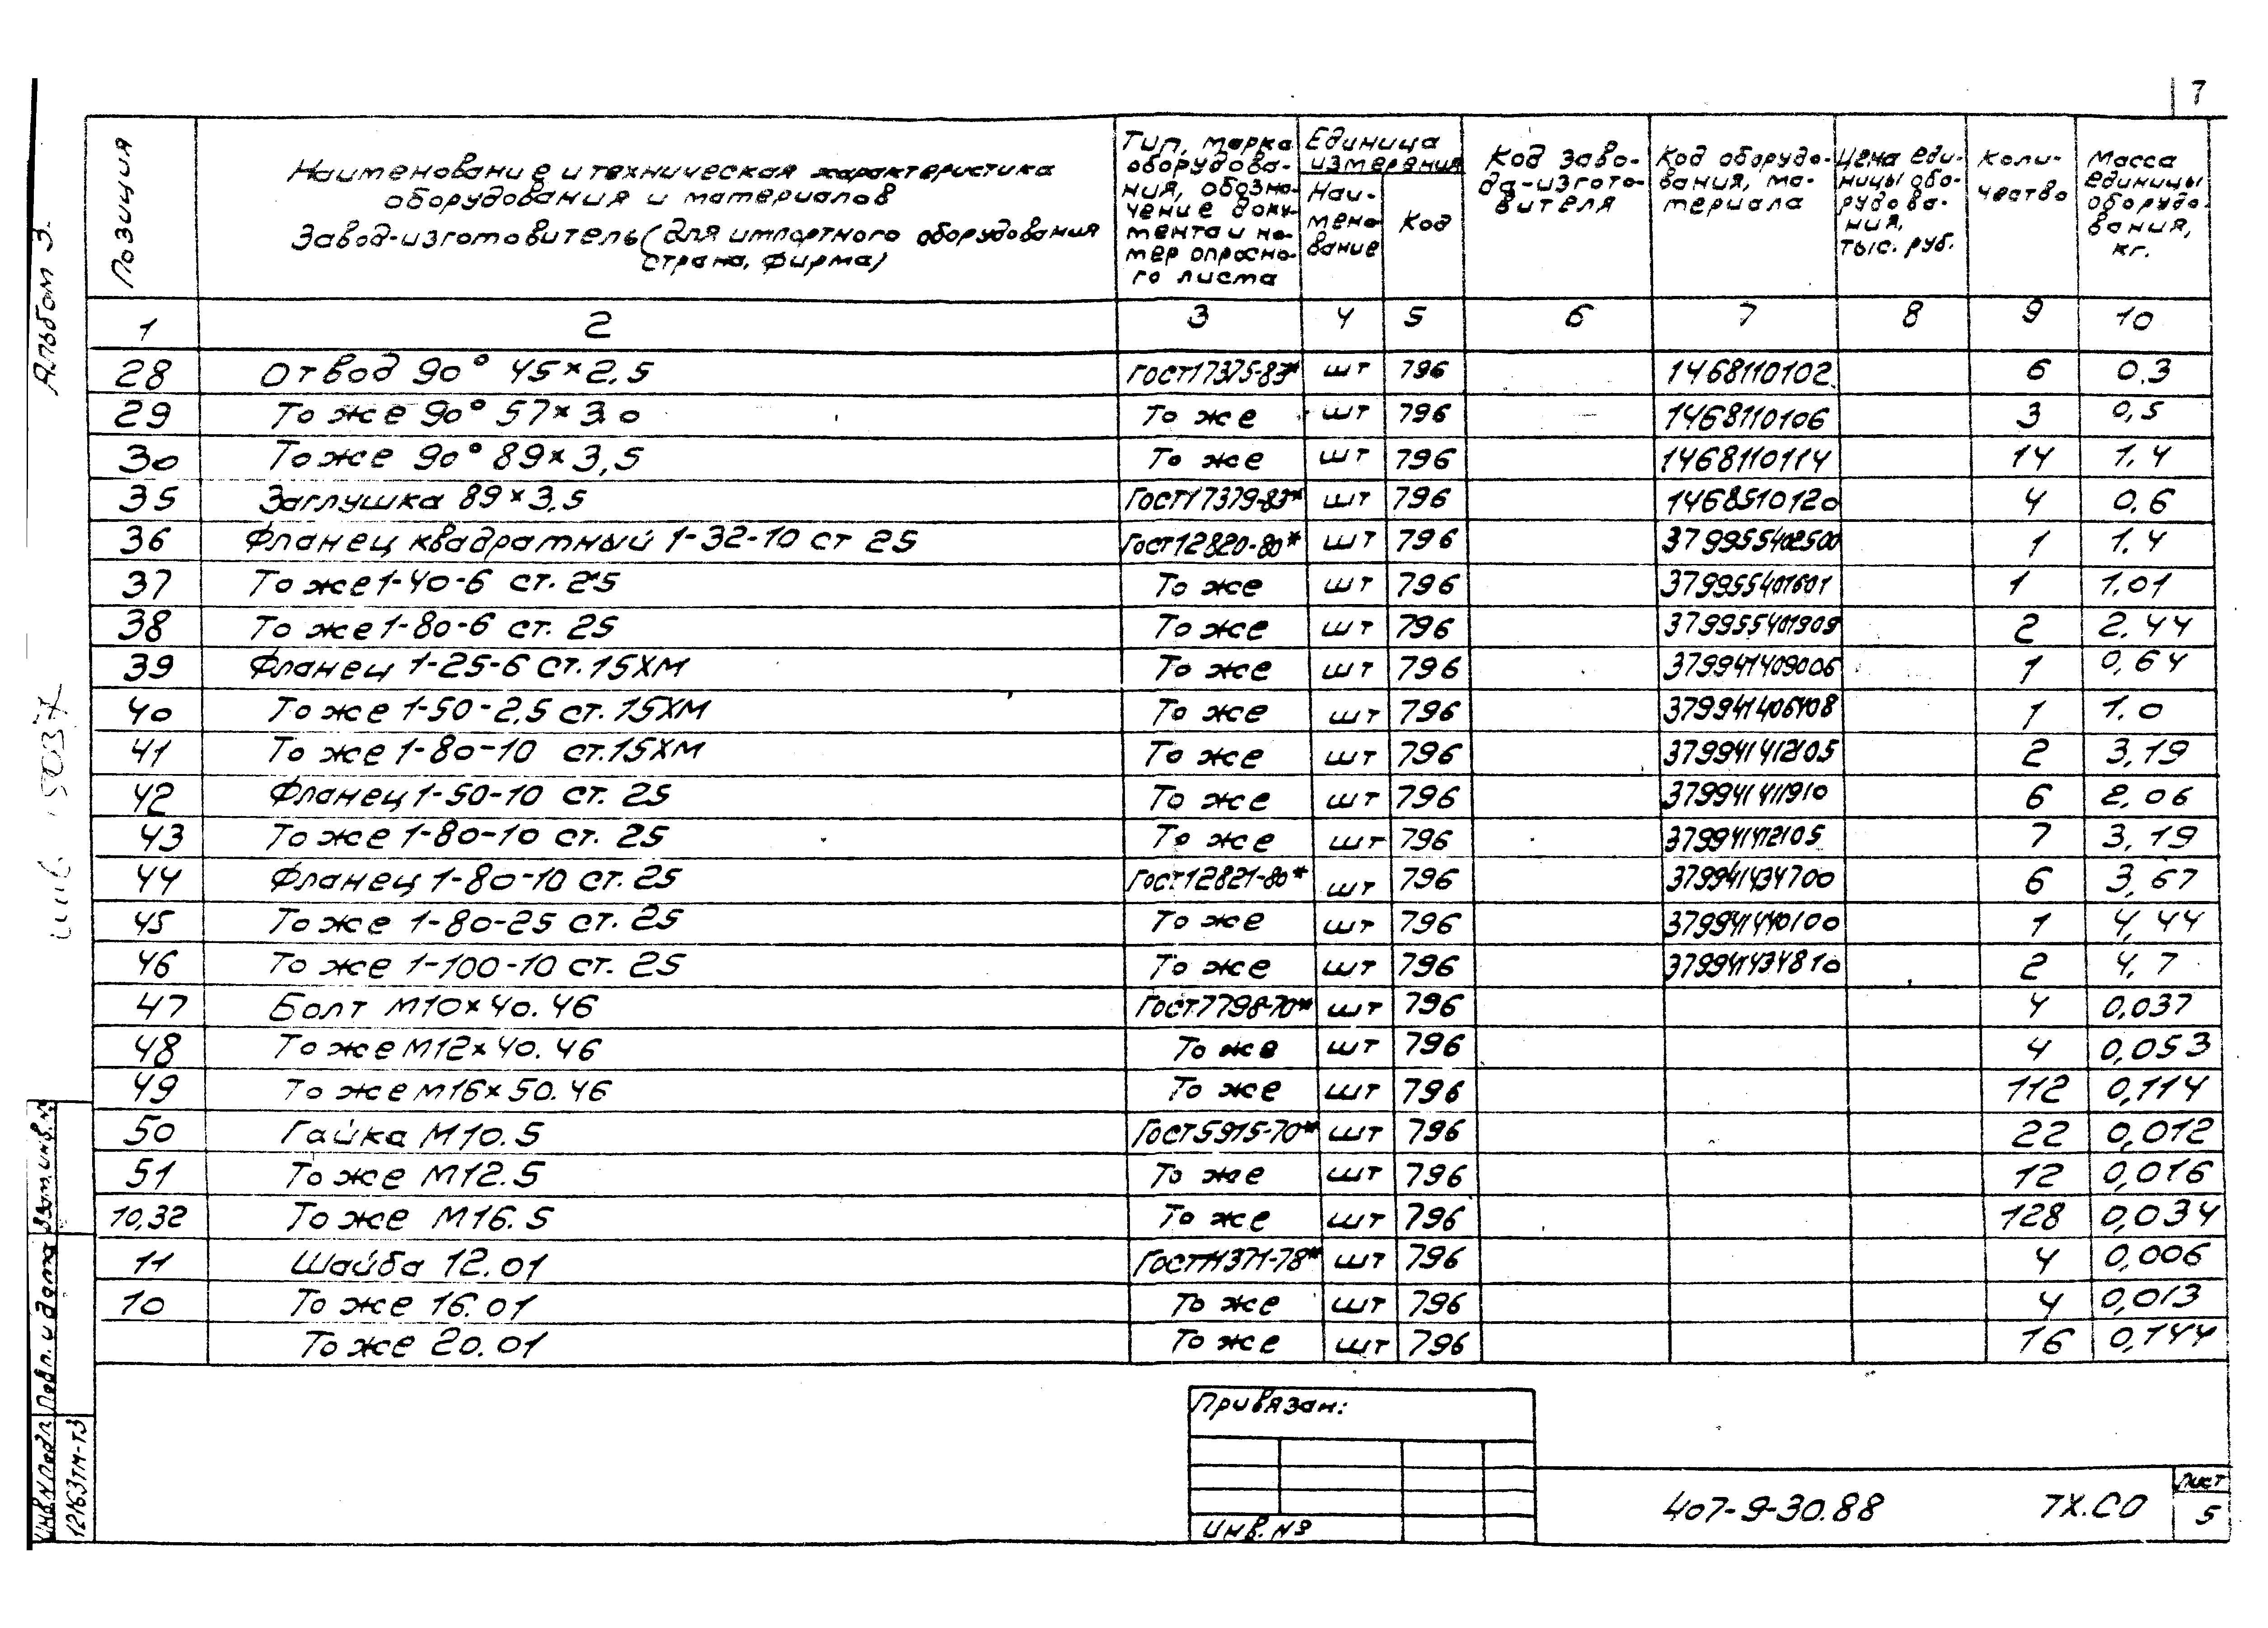 7
Альбом 3.
Позиция
Наименование и техническая характеристика
оборудования и материалов
Завод-изготовитель (для импортного оборудования
страна, фирма)
Тип, марка
оборудова-
ния, обозна-
чение доку-
мента и но-
мер опросно-
го листа
Единица
измерения
Наи-
мено-
вание
Код
Код заво-
да-изгото-
вителя
Код оборудо-
вания, ма-
териала
Цена еди-
ницы обо-
рудова-
ния,
тыс. руб.
Коли-
чество
Масса
единицы
оборудо-
вания,
кг.
1 2 3 4 5 6 7 8 9 10
28 Отвод 90° 45×2,5 ГОСТ17375-83* шт 796 1468110102 6 0.3
29 То же 90° 57×3.0 То же шт 796 1468110106 3 0,5
30 То же 90° 89×3,5 То же шт 796 1468110114 14 1.4
35 Заглушка 89×3,5 ГОСТ17379-83* шт 796 1468510120 4 0,6
36 Фланец квадратный 1-32-10 ст 25 ГОСТ12820-80* шт 796 379955402500 1 1.4
37 То же 1-40-6 ст. 25 То же шт 796 379955401601 1 1.01
38 То же 1-80-6 ст. 25 То же шт 796 379955401909 2 2.44
39 Фланец 1-25-6 ст.15ХМ То же шт 796 379941409006 1 0,64
40 То же 1-50-2,5 ст.15ХМ То же шт 796 379941406408 1 1.0
41 То же 1-80-10 ст.15ХМ То же шт 796 379941412105 2 3,19
42 Фланец 1-50-10 ст. 25 То же шт 796 379941411910 6 2,06
43 То же 1-80-10 ст. 25 То же шт 796 379941412105 7 3,19
44 Фланец 1-80-10 ст. 25 ГОСТ12821-80* шт 796 379941434700 6 3,67
45 То же 1-80-25 ст. 25 То же шт 796 379941440100 1 4,44
46 То же 1-100-10 ст. 25 То же шт 796 379941434810 2 4,7
47 Болт М10×40.46 ГОСТ7798-70* шт 796 4 0,037
48 То же М12×40.46 То же шт 796 4 0,053
49 То же М16×50.46 То же шт 796 112 0,114
50 Гайка М10.5 ГОСТ5915-70* шт 796 22 0,012
51 То же М12.5 То же шт 796 12 0,016
10,32 То же М16.5 То же шт 796 128 0,034
11 Шайба 12.01 ГОСТ11371-78* шт 796 4 0,006
10 То же 16.01 То же шт 796 4 0,013
То же 20.01 То же шт 796 16 0,144
Взам.инв.№
Подп. и дата
Инв№подл.
12163тм-т3
Привязан:
Инв.№
407-9-30.88
ТХ.СО
Лист
5